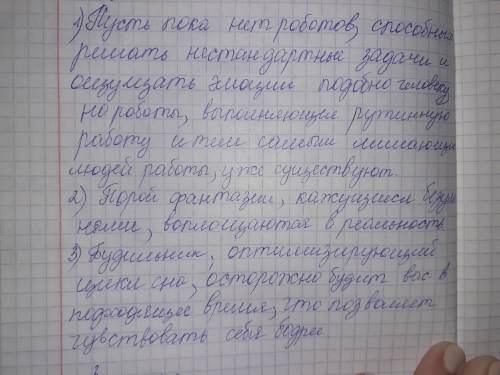 1) Пусть пока нет роботов, способных
решать нестандартные задачи и
ощущать эмоции подобно человеку,
но роботы, выполняющие рутинную
работу и тем самым лишающие
людей работы, уже существуют.
2) Порой фантазии, кажущиеся безум
ными, воплощаются в реальность
3) Будильник, оптимизирующий
цикл сна, осторожно будит вас в
подходящее время, что позволяет
чувствовать себя бодрее